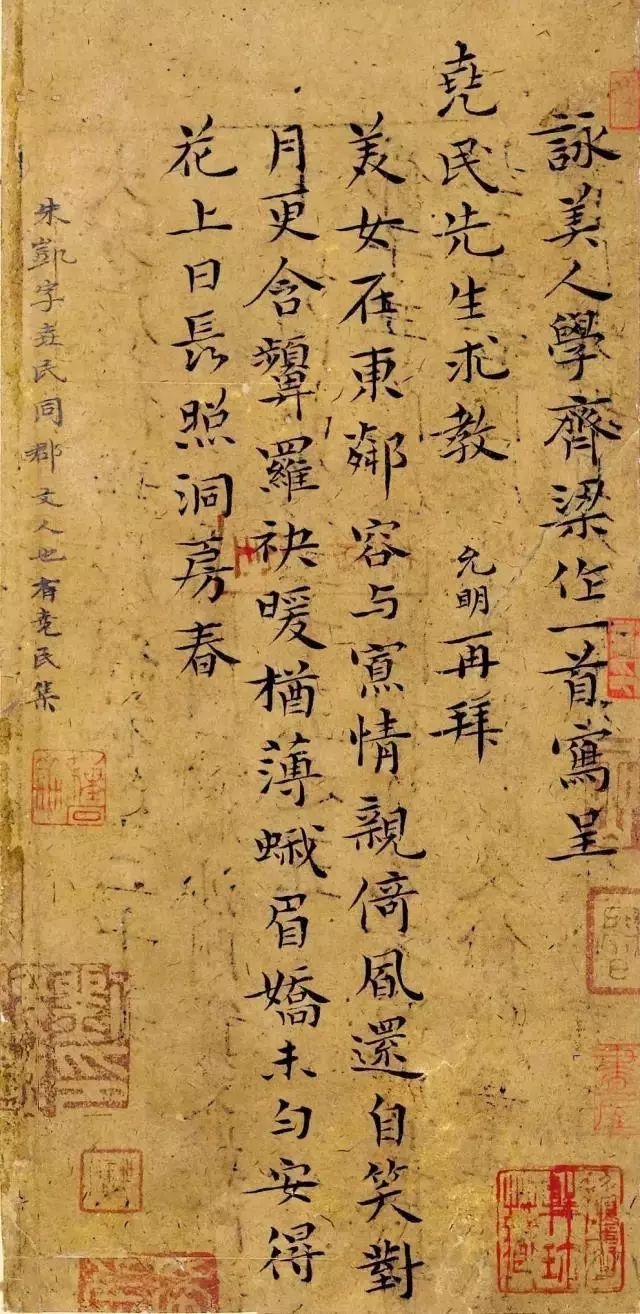 詠美人學齊梁作一首寫呈
堯民先生求教 允明再拜
美女在東鄰容与寘情親倚風還自笑對
月更含顰羅袂暖猶薄蛾眉嬌未勻安得
花上日長照洞房春
朱凱字堯民同郡文人也有堯民集